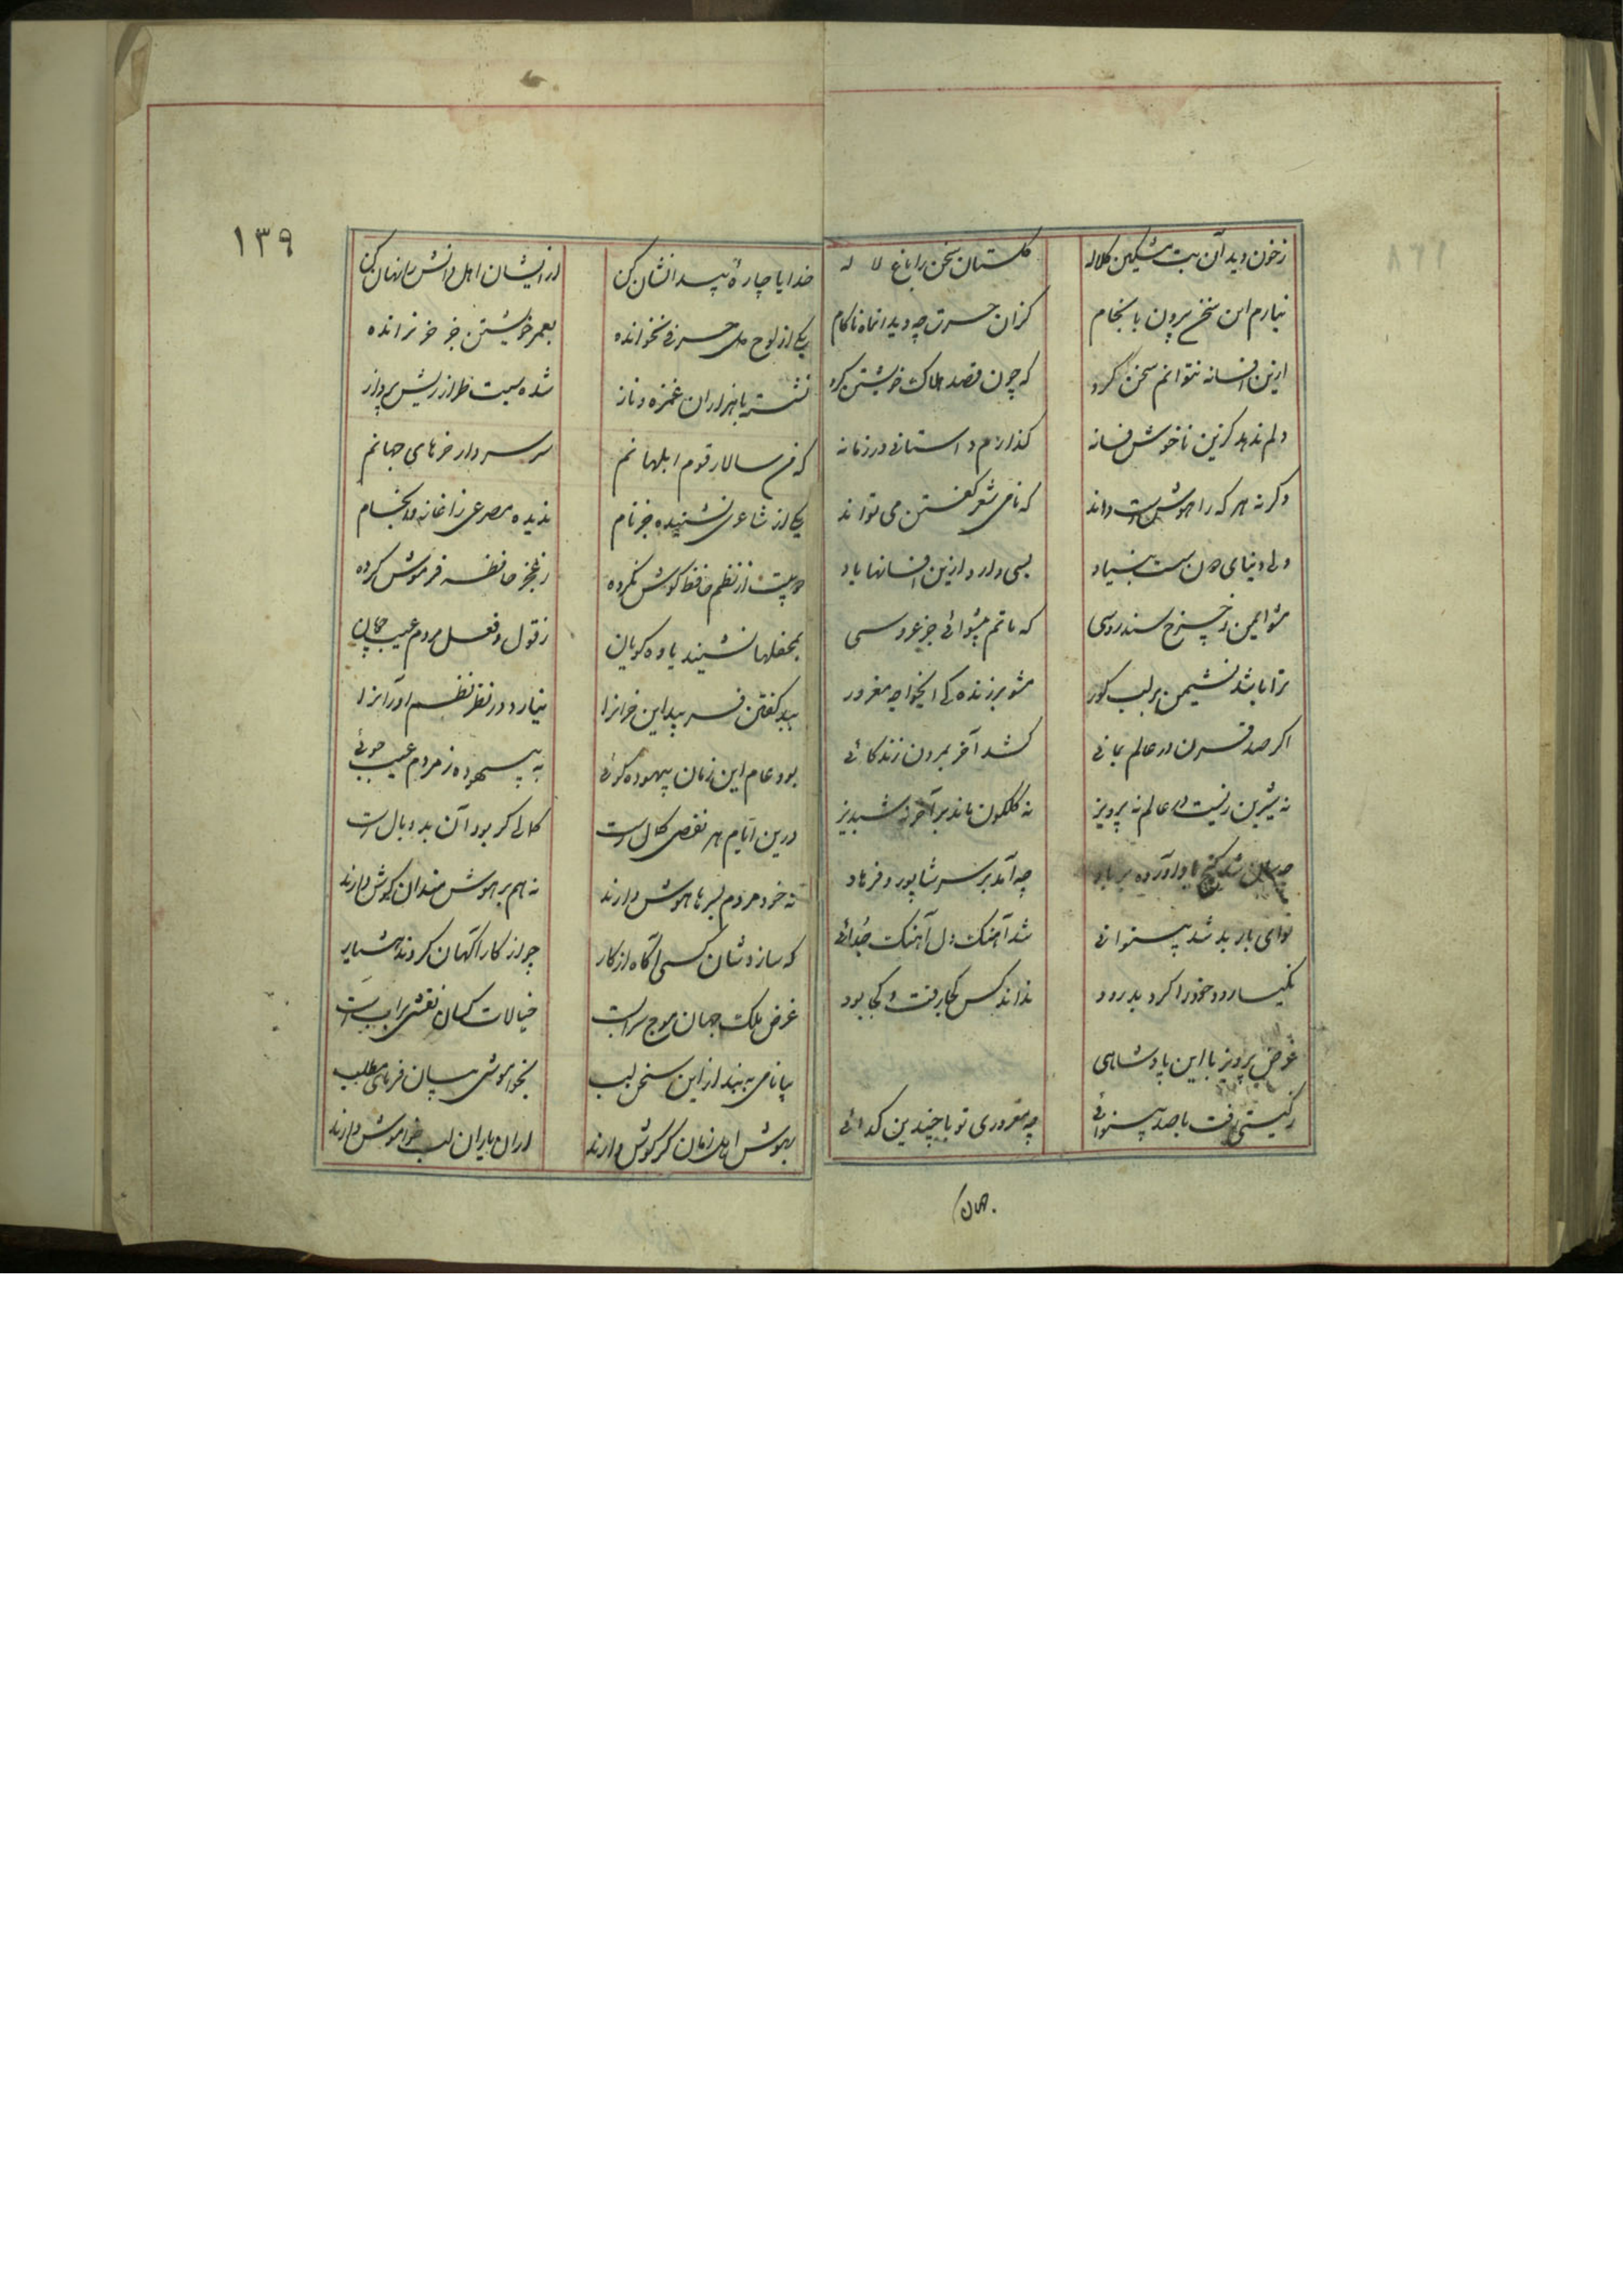 زخون دید آن بت مشکین کلاله    گلستان سخن را باغ لاله
نیارم این سخن بردن بانجام    کزان حسرت چه دید انماه ناکام
ازین افسانه نتوانم سخن کرد    که چون قصد هلاک خویشتن کرد
دلم ندهد کزین ناخوش فسانه    گذارم داستانی در زمانه
وگرنه هر که را هوش است داند    که نامی شعر گفتن می تواند
ولی دنیای دون سست بنیاد    بسی دارد ازین افسانها یاد
مشو ایمن ز چرخ سندروسی    که ماتم پیشوائی جز عروسی
ترا باشد نشیمن بر لب گور    مشو بر زنده کی ایخواجه مغرور
اگر صد قرن در عالم بمانی    کشد آخر بمردن زندگانی
نه شیرین زیست در عالم نه پرویز    نه گلگون ماند بر آخر نه شبدیز
چه سان شد گنج باد آورده بر باد    چه آمد بر سر شاپور و فرهاد
نوای باربد شد بینوائی    شد آهنگ دل آهنگ جدائی
نکیسا رود خود را کرد بدرود    نداند کس کجا رفت و کجا بود
غرض پرویز با این پادشاهی
ز گیتی رفت با صد بینوائی    چه مغروری تو با چندین گدائی
۱۳۹
خدایا چارهٔ پیدا نشان کن    از ایشان اهل دانش را نهان کن
یکی از لوح دل حرفی نخوانده    بعمر خویشتن جز خر نرانده
نشسته با هزاران غمزه و ناز    شده سبلت طراز ریش پرداز
که من سالار قوم ابلهانم    سر سردار خرهای جهانم
یکی از شاعری نشنیده جز نام    ندیده مصرعی زاغاز و انجام
دو بیت از نظم حافظ گوش نکرده    ز عجز حافظه فرموش کرده
بمحفلها نشیند یاوه گویان    ز قول و فعل مردم عیب جویان
ببد گفتن فریبد این خرانرا    نیارد در نظر نظم آورانرا
بود عام این زمان بیهوده گوئی    به بیهوده ز مردم عیب جوئی
درین ایام هر نقصی کمال است    کمالی گر بود آن بد وبال است
نه خود مردم بسرها هوش دارند    نه هم بر هوش مندان گوش دارند
که سازدشان کسی آگاه از کار    چو از کار آگهان کردند هشیار
غرض ملک جهان موج سرابست    خیالات کسان نقشی بر آب است
بیا نامی به بند از این سخن لب    بخواموشی بیان فرمای مطلب
بهوش اهل زمان گر گوش دارند    ازان یاران لب خواموش دارند